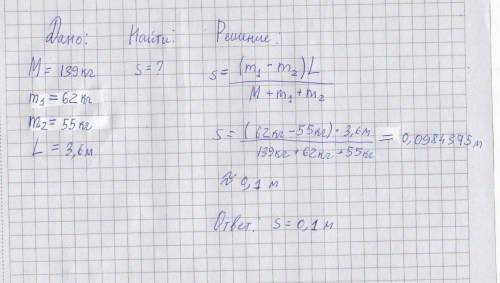 Дано:
M = 139кг
m₁ = 62кг
m₂ = 55кг
L = 3,6м
Найти:
s = ?
Решение:
s = (m₁ - m₂)L / M + m₁ + m₂
s = (62кг - 55кг) · 3,6м / 139кг + 62кг + 55кг = 0,0984375м
≈ 0,1 м
Ответ: s = 0,1 м